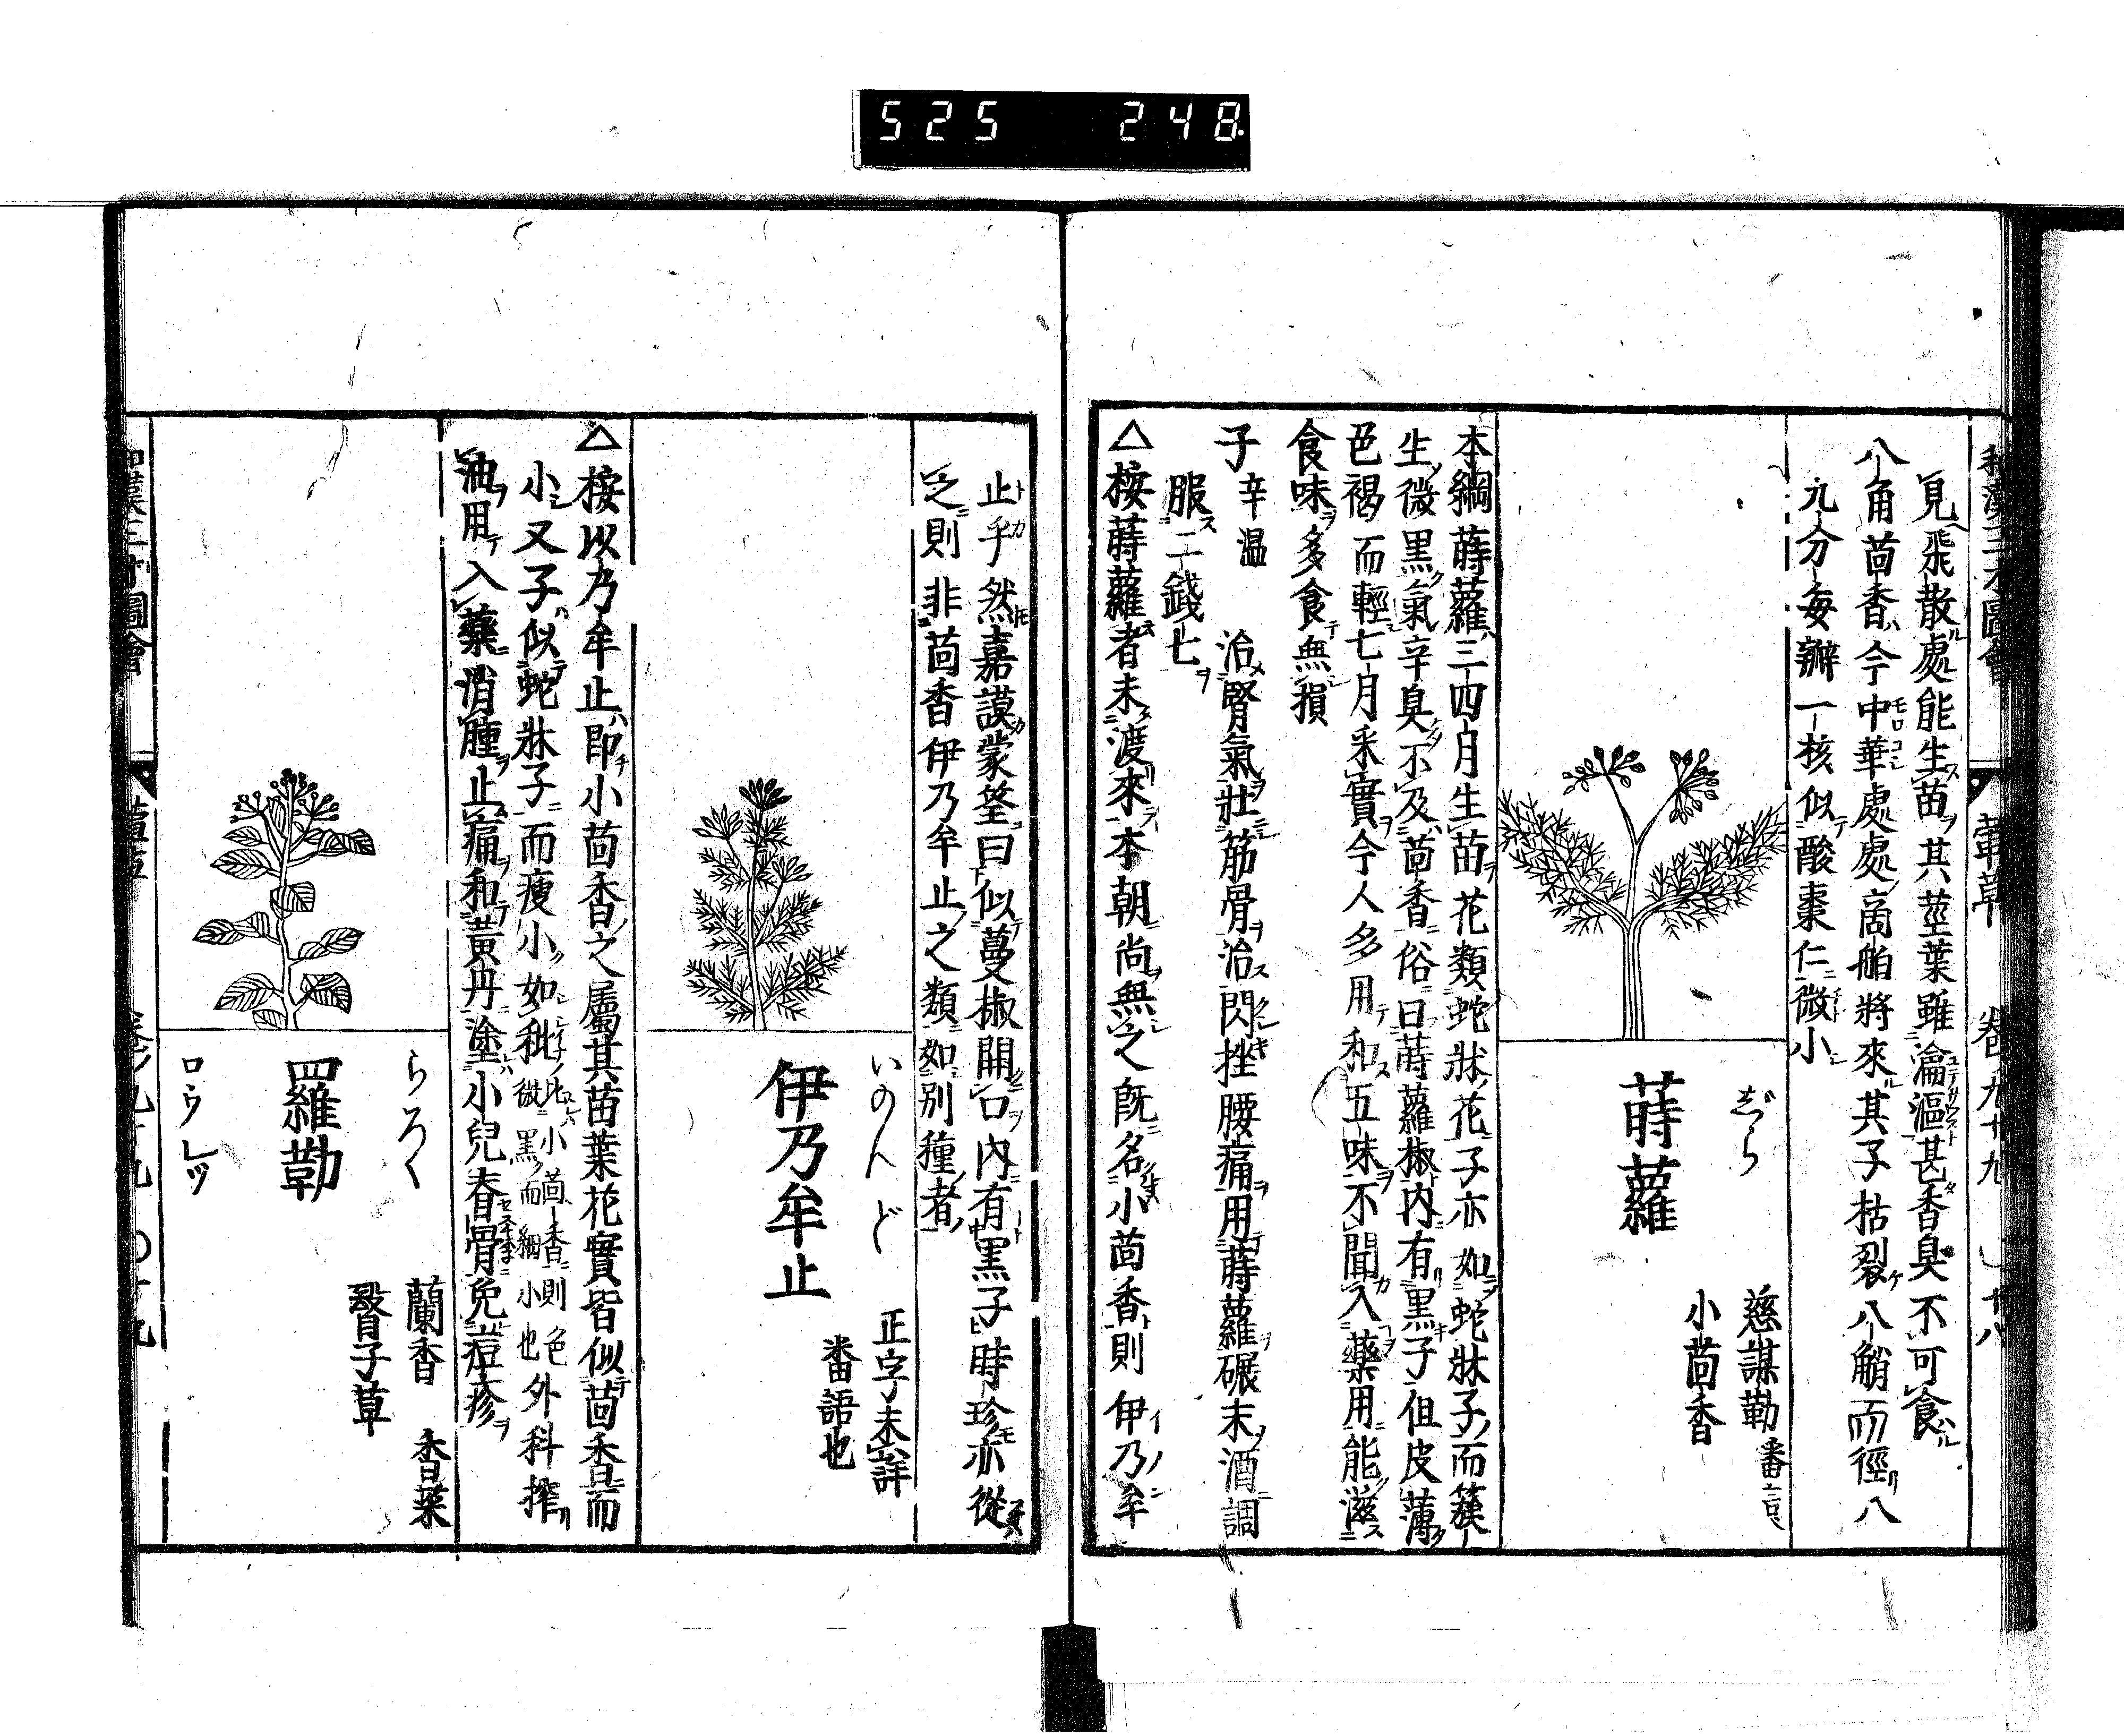 525 248
和漢三才圖會 葷草 卷九十九 ノ十八
見飛散處能生苗其莖葉雖瀹漚甚香臭不可食
八角茴香今中華處處商舶將來其子枯裂八觭而徑八
九分每瓣一核似酸棗仁微小
蒔蘿
ぢら
慈謀勒 番言
小茴香
本綱蒔蘿三四月生苗花類蛇牀花子亦如蛇牀子而簇
生微黑氣辛臭不及茴香俗曰蒔蘿椒內有黑子但皮薄
色褐而輕七月采實今人多用和五味不聞入藥用能滋
食味多食無損
子 辛温 治腎氣壯筋骨治閃挫腰痛用蒔蘿碾末酒調
服二錢匕
△按蒔蘿者未渡來本朝尚無之既名小茴香則伊乃牟
止乎然嘉謨蒙筌曰似蔓椒開口內有黑子時珍亦從
之則非茴香伊乃牟止之類如別種者
伊乃牟止
いのんど
正字未詳
番語也
△按以乃牟止即小茴香之屬其苗葉花實皆似茴香而
小又子似蛇牀子而瘦小如秕 比小茴香則色微黑而細小也 外科搾
油用入藥消腫止痛和黃丹塗小兒脊骨免痘疹
羅勒
らろく
ロウレツ
蘭香 香菜
翳子草
和漢三才圖會 葷草 卷ノ九十九 ○十九